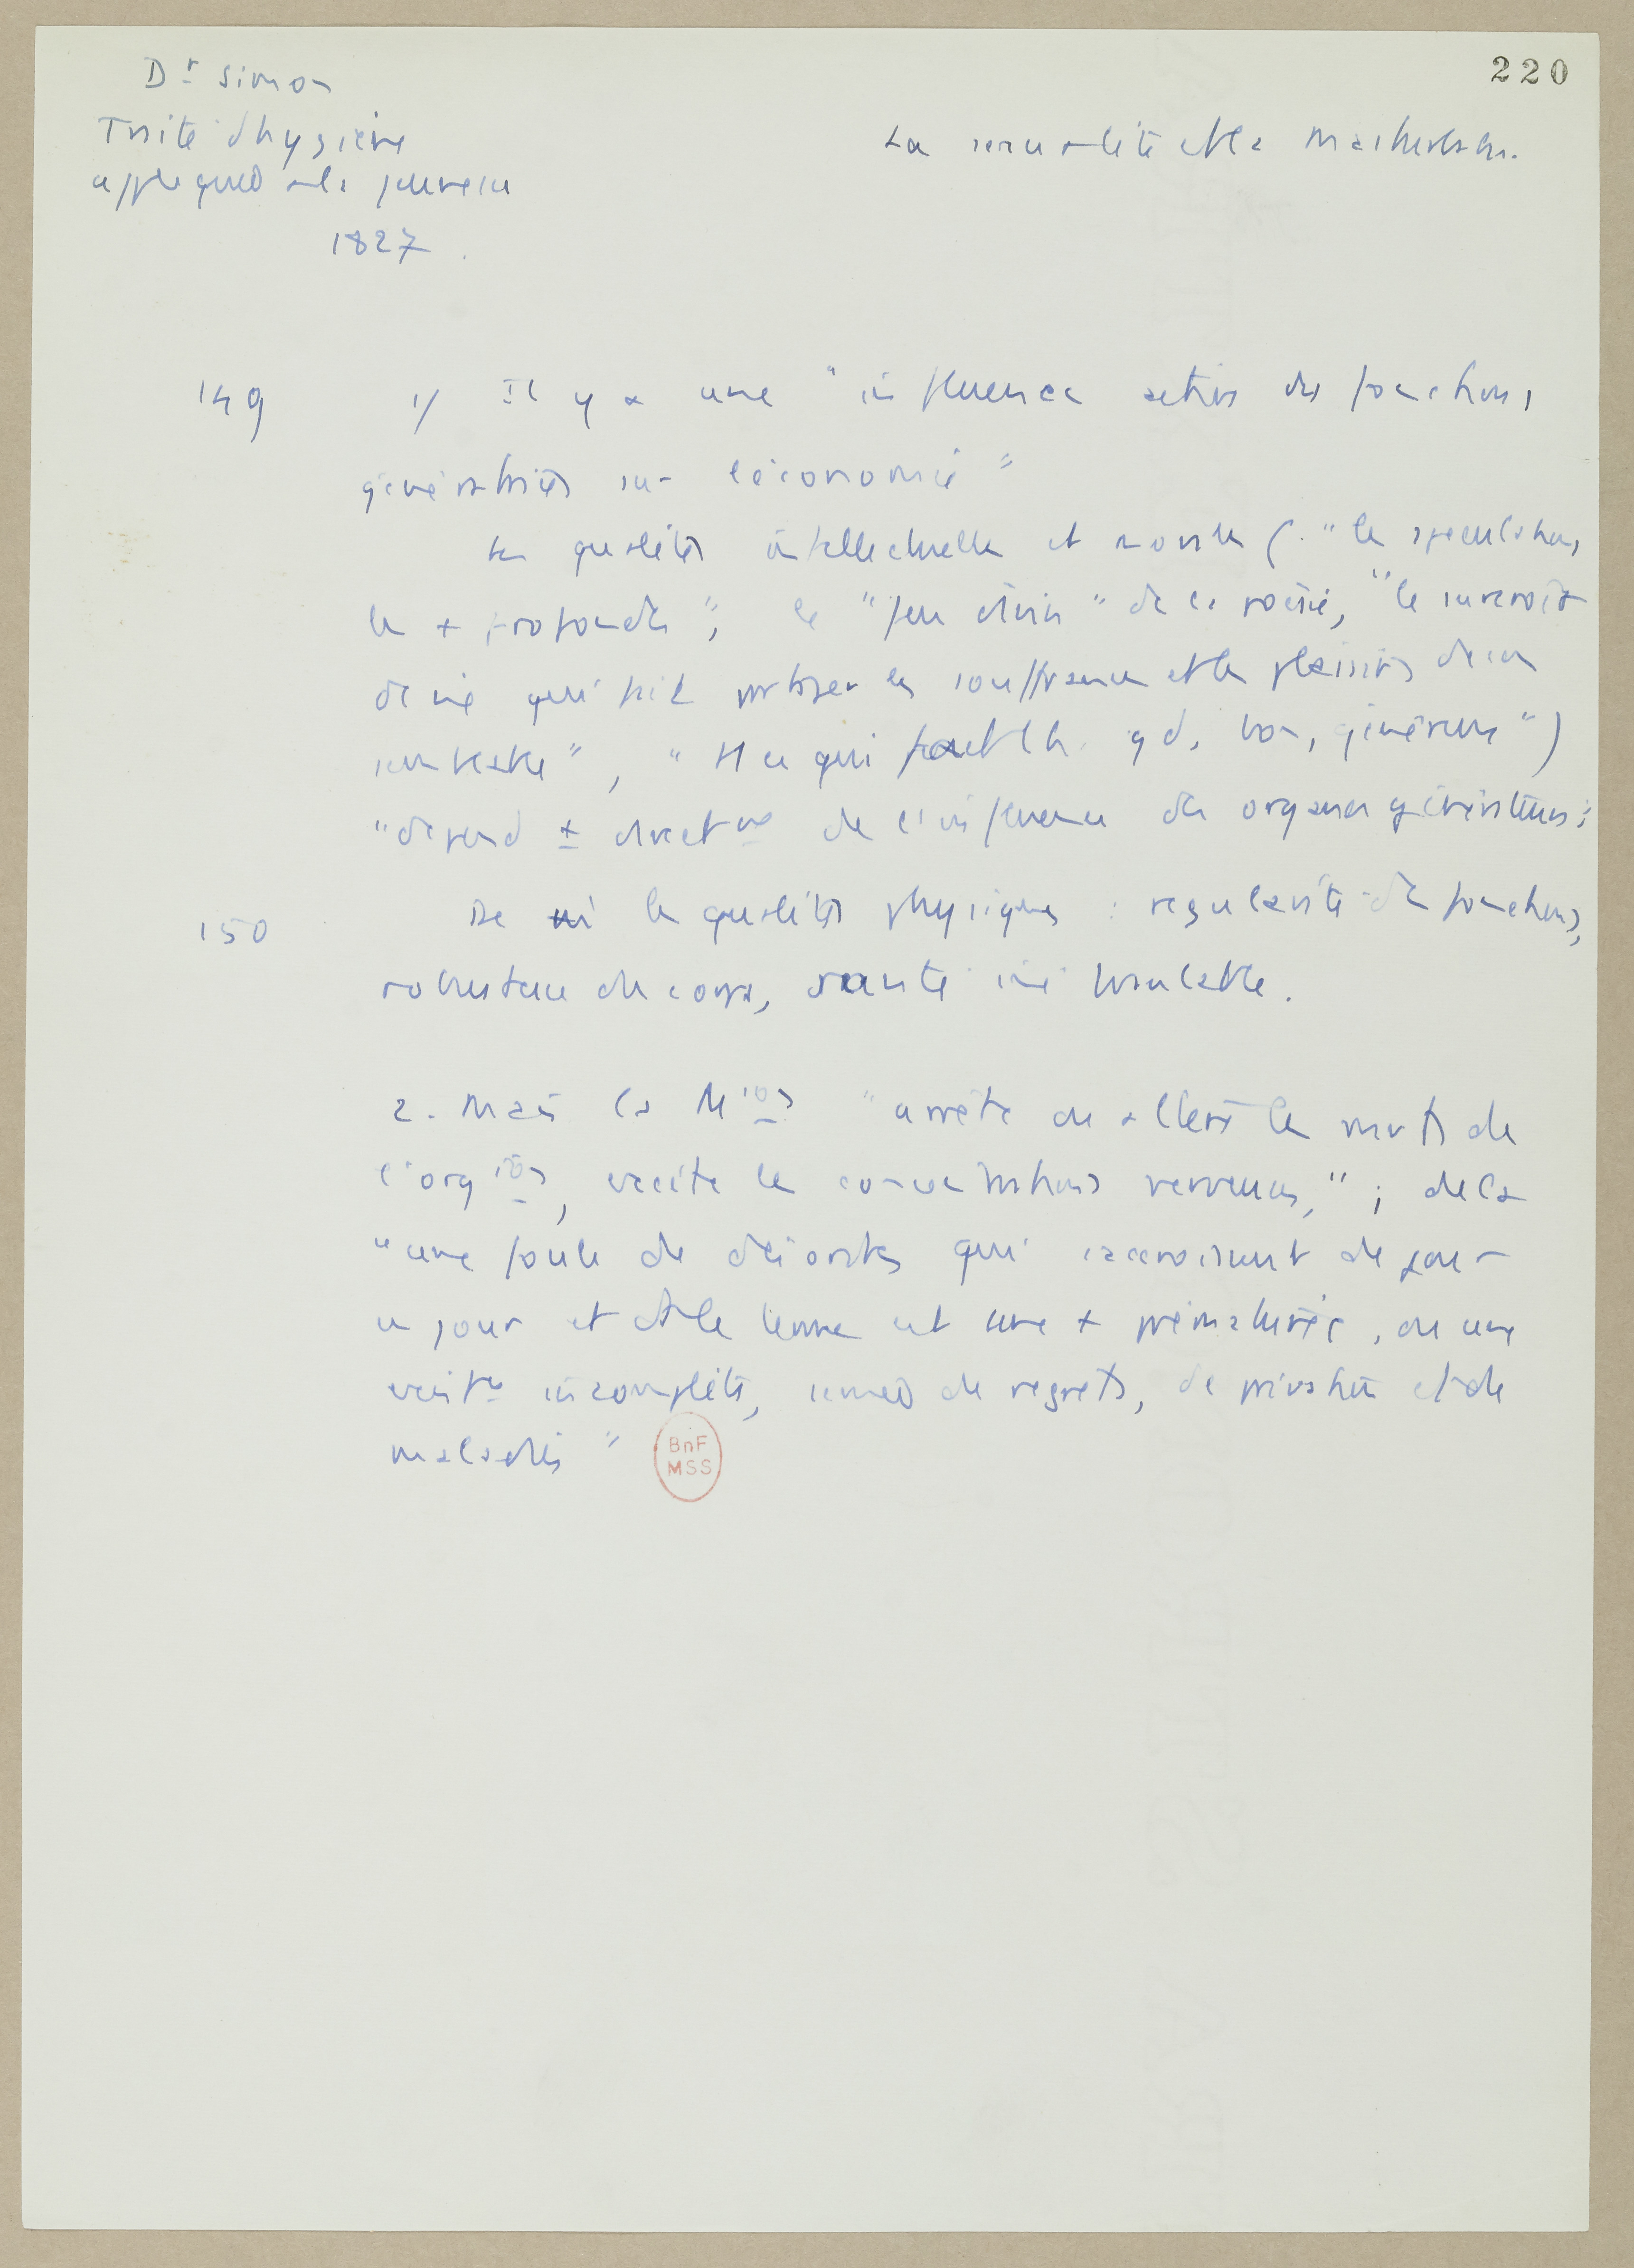 220
Dr Simon
Traité d'hygiène
appliquée à la jeunesse
1827.
La sexualité et la masturbation.
149 1/ Il y a une "influence active des fonctions
génératrices sur l'économie"
Les qualités intellectuelles et morales ("les spéculations
les + profondes"; le "feu divin" de la poésie, "le surcroît
de vie qui fait partager les souffrances et les plaisirs de ses
semblables", "tt ce qui fait l'h. gd, bon, généreux")
"dépend + directmt de l'influence des organes générateurs;
150 De mê les qualités physiques : régularité des fonctions,
robustesse du corps, santé inébranlable.
2. Mais la Mion "arrête ou altère les mvts de
l'orgion, excite les concentrations nerveuses,"; de là
"une foule de désordres qui s'accroissent de jour
en jour et dt le terme est une + prématurée, ou une
exist. incomplète, semée de regrets, de privations et de
maladies"
BnF
MSS